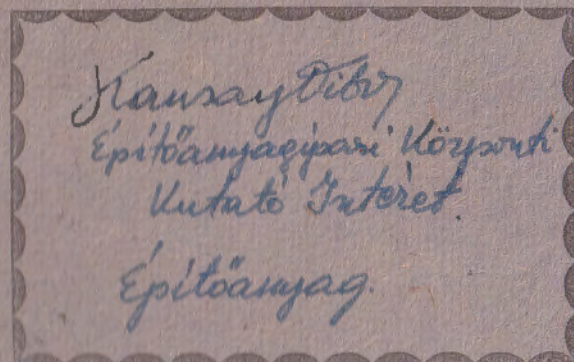 Kausay Tibor
Építőanyagipari Központi
Kutató Intézet.
Építőanyag.